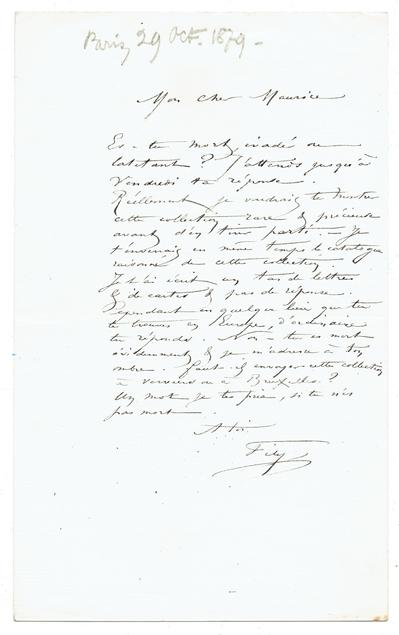 Paris, 29 Oct. 1879 -
Mon cher Maurice
Es-tu mort, évadé ou
latitant ? J'attends jusqu'à
Vendredi ta réponse.
Réellement je voudrais te montrer
cette collection rare & précieuse
avant d'en tirer parti. — Je
t'enverrais en même temps le catalogue
raisonné de cette collection.
Je t'ai écrit un tas de lettres
& de cartes & pas de réponse.
Cependant en quelque lieu que tu
te trouves en Europe, d'ordinaire
tu réponds. Non - tu es mort
évidemment & je m'adresse à ton
ombre. Faut-il envoyer cette collection
à Verviers ou à Bruxelles ?
Un mot je te prie, si tu n'es
pas mort.
A toi